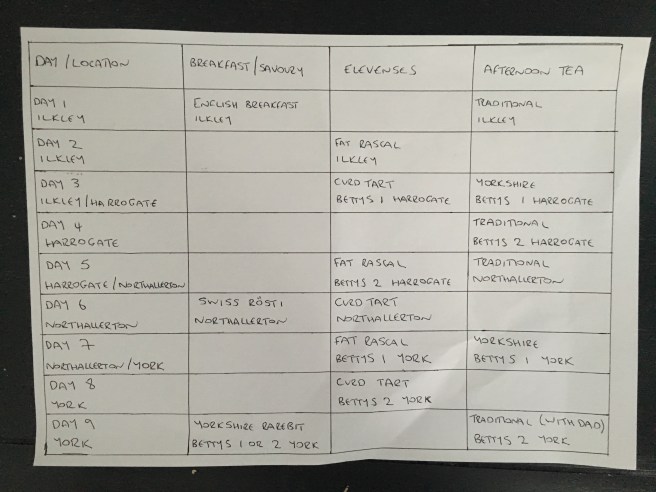 DAY / LOCATION
BREAKFAST / SAVOURY
ELEVENSES
AFTERNOON TEA
DAY 1
ILKLEY
ENGLISH BREAKFAST
ILKLEY
TRADITIONAL
ILKLEY
DAY 2
ILKLEY
FAT RASCAL
ILKLEY
DAY 3
ILKLEY / HARROGATE
CURD TART
BETTYS 1 HARROGATE
YORKSHIRE
BETTYS 1 HARROGATE
DAY 4
HARROGATE
TRADITIONAL
BETTYS 2 HARROGATE
DAY 5
HARROGATE / NORTHALLERTON
FAT RASCAL
BETTYS 2 HARROGATE
TRADITIONAL
NORTHALLERTON
DAY 6
NORTHALLERTON
SWISS RÖSTI
NORTHALLERTON
CURD TART
NORTHALLERTON
DAY 7
NORTHALLERTON / YORK
FAT RASCAL
BETTYS 1 YORK
YORKSHIRE
BETTYS 1 YORK
DAY 8
YORK
CURD TART
BETTYS 2 YORK
DAY 9
YORK
YORKSHIRE RAREBIT
BETTYS 1 OR 2 YORK
TRADITIONAL (WITH DAD)
BETTYS 2 YORK